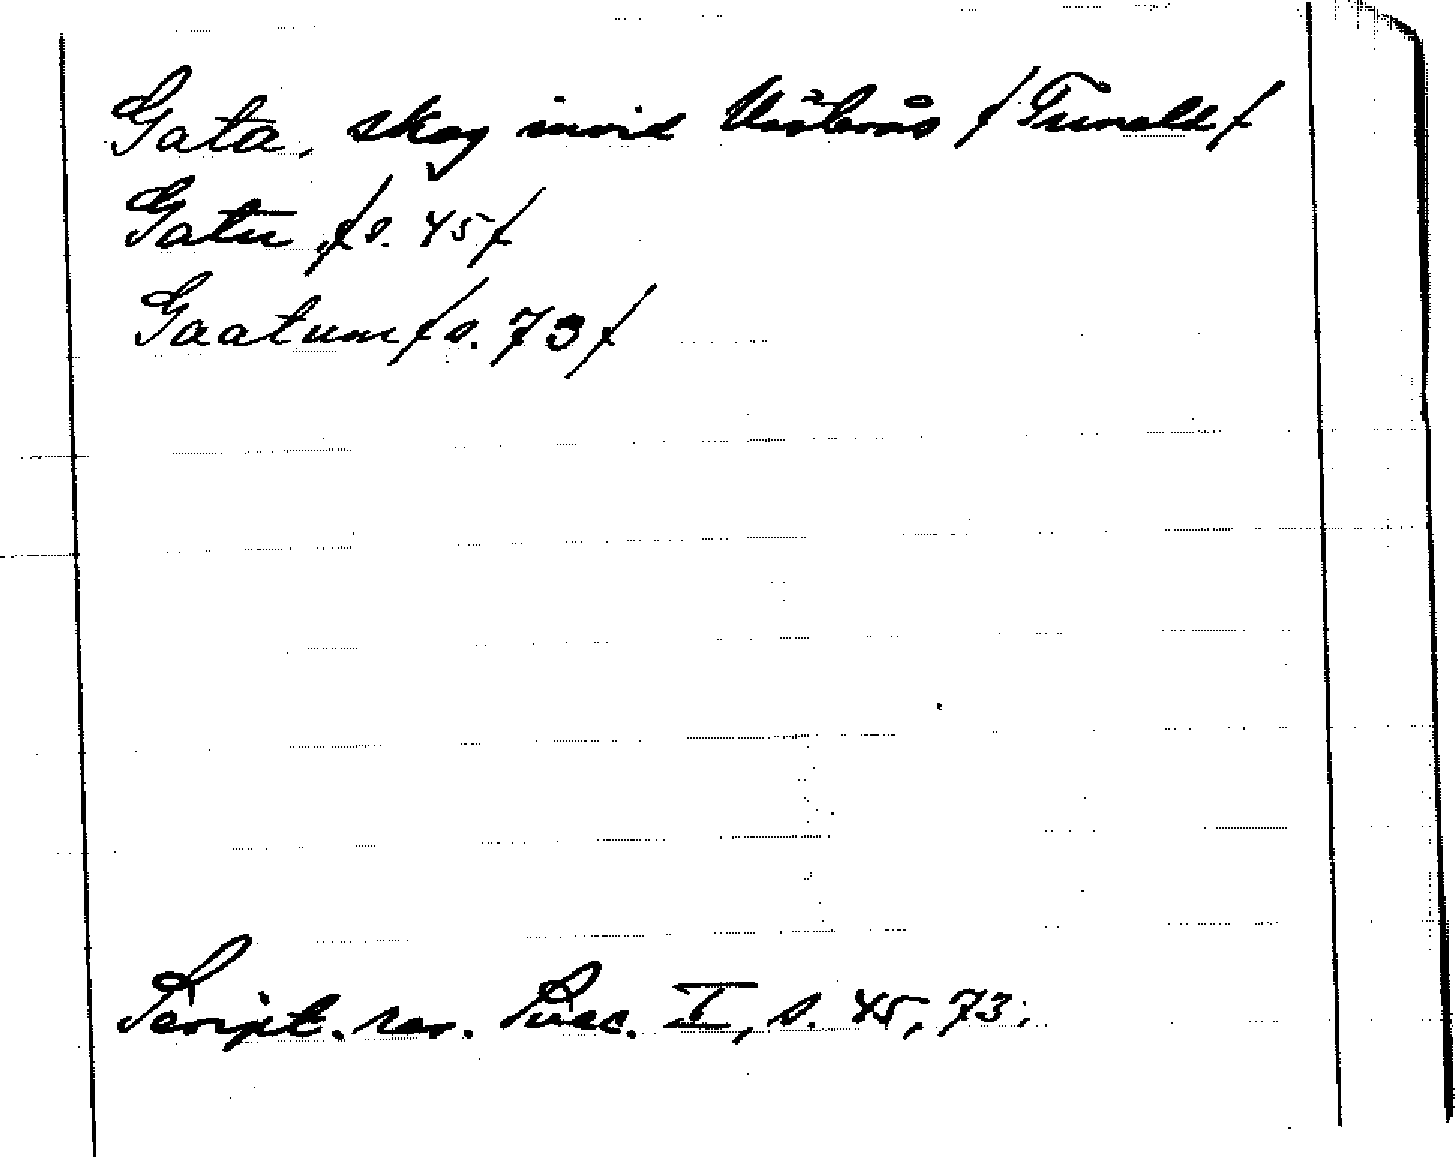 Gata, skog invid Västerås /Tunald/
Gatu /s. 45/
Gaatum /s. 73/
Script. rer. Suec. I, s. 45, 73.